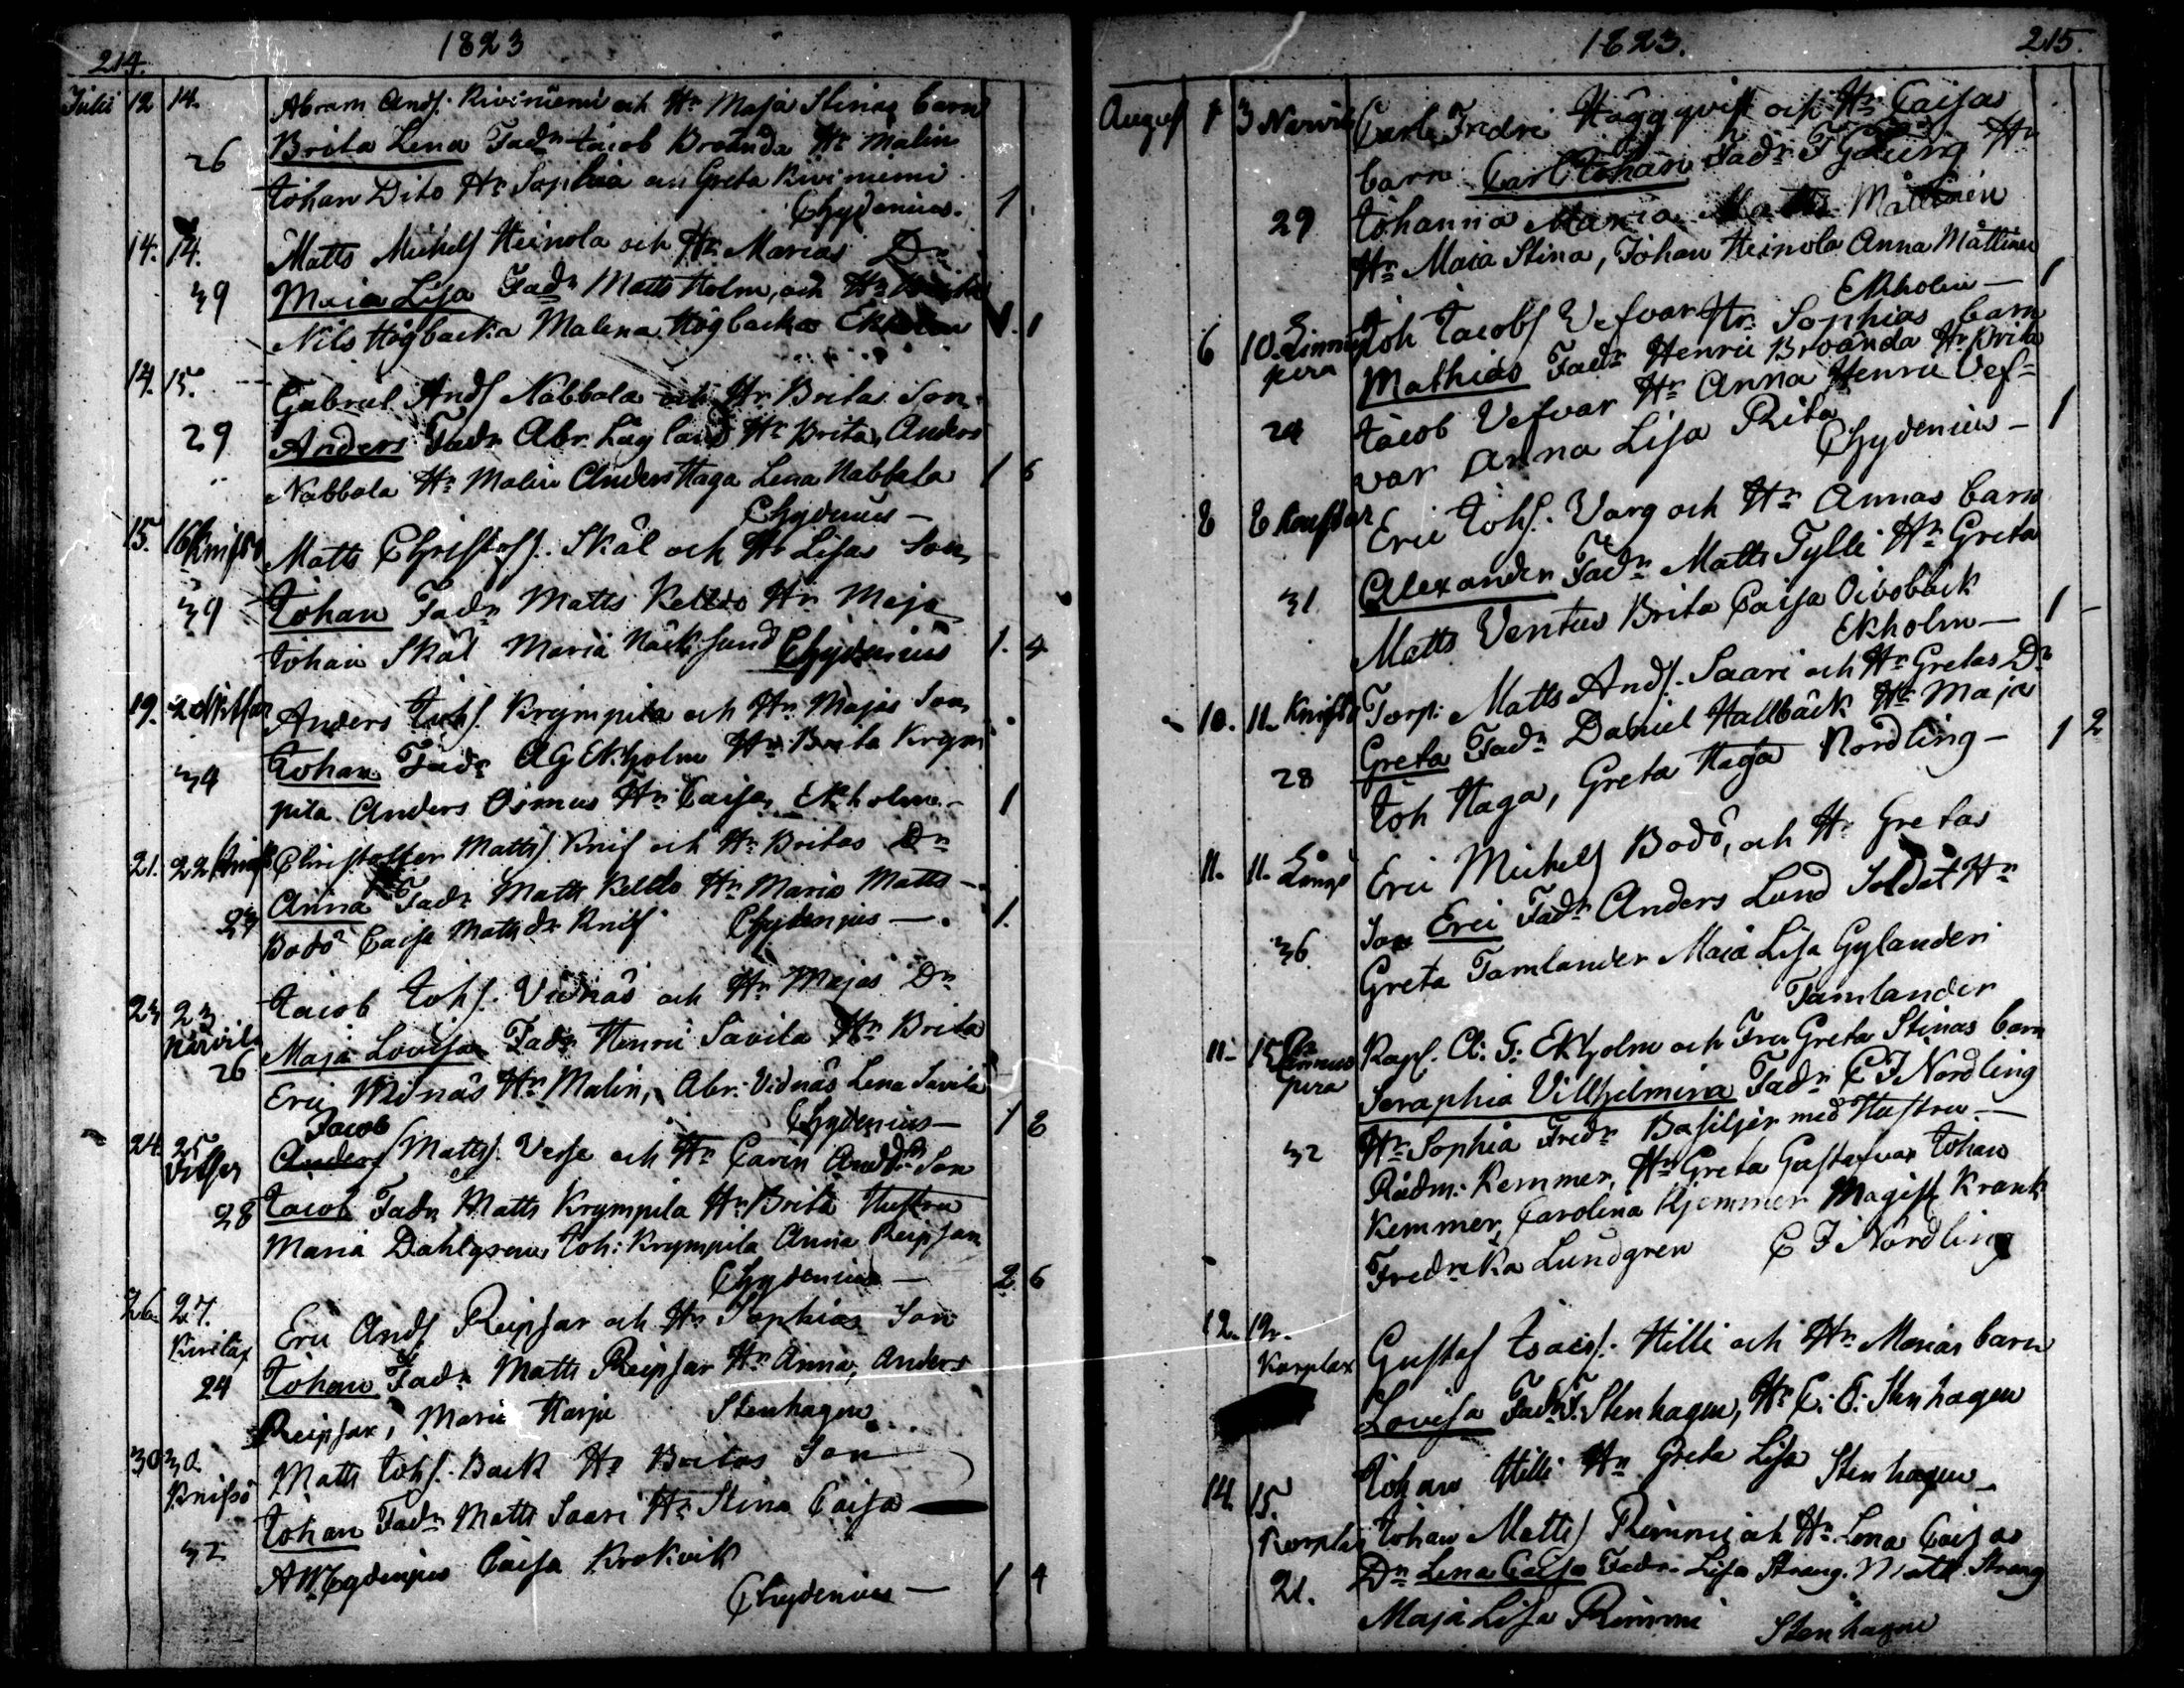 214.
1823
Julii 12 14. Abram Andſ. Riviniemi och Hr Maja Stinas barn
26 Brita Lena Fadr Jacob Broända Hr Malin
Johan Dito Hr Sophia an Greta Riviniemi
Chydenius. 1
14. 14. Matts Michelſ Heinola och Hr Marias Dr
39 Maia Lisa Fadr Matts Holm, och Hr
Nils Högbacka Malena Högbacka Ekholm 1
14. 15. Gabriel Andſ Nabbala och Hr Britas Son
29 Anders Fadr Abr. Lägland Hr Brita, Anders
Nabbala Hr Malin Anders Haga Lena Nabbala 1 6
Chydenius –
15. 16 Knifsö Matts Christofſ. Skål och Hr Lisas Son
39 Johan Fadr Matts Keldo Hr Maja
Johan Skål Maria Näcksund Chydenius 1. 4
19. 20 Anders Johſ. Krympila och Hr Majas Son
34 Johan Fadr A G Ekholm Hr Brita Krym
pila Anders Åsmus Hr Caisa, Ekholm – 1
21. 22 Christoffer Mattsſ. Knif och Hr Britas Dr
Anna Fadr Matts Keldo Hr Maria Matts
Bodö Caisa Matsdr Knif Chydenius – 1.
23 23 Jacob Johſ. Vidnäs och Hr Majas Dr
Närvila
26 Maja Lovisa Fadr Henric Savila Hr Brita
Eric Widnäs Hr Malin, Abr. Vidnäs Lena Savila
Jacob Chydenius – 1 6
24. 25 Anders Mattsſ. Verse och Hr Carin Andsdr Son
Vitsar
28 Jacob Fadr Matts Krympila Hr Brita Hustru
Maria Dahlgren, Joh: Krympila Anna Reipsar
Chydenius – 2 6
26. 27. Eric Andſ Reipsar och Hr Sophias Son
24 Johan Fadr Matts Reipsar Hr Anna, Anders
Reipsar, Maria Harju Stenhagen
30 30. Matts Johſ. Back Hr Britas Son
Knifsö
32 Johan Fadr Matts Saari Hr Stina Caisa
A W Chydenius Caisa Krokvik
Chydenius – 1 4
1823.
215.
August 1 3 Närvila Carl Fredric Häggqvist och Hr Caisas
barn Carl Johan Fadr Hr
29 Johanna Maria Matts Mattinen
Hr Maia Stina, Johan Heinola Anna Mattinen
Ekholm – 1
6 10. Joh Jacobſ Vefvar Hr Sophias barn
Mathias Fadr Henric Broända Hr Brita
24 Jacob Vefvar Hr Anna Henric Vef-
var Anna Lisa Rita
Chydenius – 1
8 8 Eric Johſ. Varg och Hr Annas barn
31 Alexander Fadr Matts Tylli Hr Greta
Matts Ventus Brita Caisa Oivobäck
Ekholm – 1 –
10. 11. Knifsö Torp. Matts Andſ. Saari och Hr Gretas Dr
28 Greta Fadr Daniel Hallbäck Hr Maja
Joh Haga, Greta Haga Nordling – 1 2
11. 11. Eric Michelſ Bodö, och Hr Gretas
36 Son Eric Fadr Anders Lund Soldat Hr
Greta Tamlander Maia Lisa Gylander
Tamlander
11. 15 Kapſ. A: G: Ekholm och Fru Greta Stinas barn
Seraphia Vilhelmina Fadr C F Nordling
32 Hr Sophia Fredr Basilier med Hustru –
Rådm: Kemmer, Hr Greta Gustafva Johan
Kemmer, Carolina Kjemmer Magist Krank
Fredrika Lundgren C F Nordling
12. 12. Gustaf Isacsſ. Hilli och Hr Marias barn
Korplax
Lovisa Fadr F. Stenhagen, Hr C. C. Stenhagen
Johan Hilli Hr Greta Lisa Stenhagen –
14. 15. Johan Mattsſ Rimmi och Hr Lena Caisas
Korplax
21. Dr Lena Caisa Fadr Lisa Strang. Matts Strang
Maja Lisa Rimmi Stenhagen